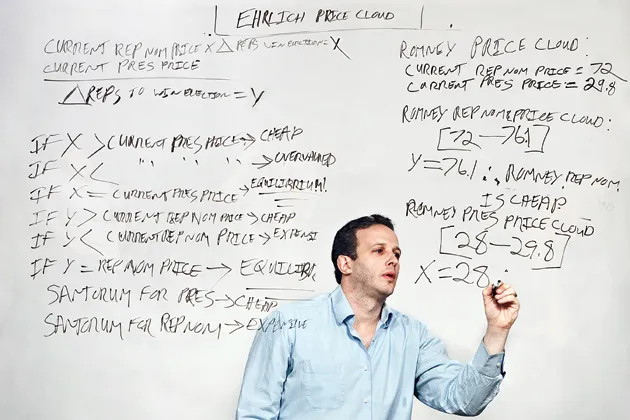 EHRLICH PRICE CLOUD
CURRENT REP NOM PRICE X △ REPS WIN ELECTION = X
CURRENT PRES PRICE
△ REPS TO WIN ELECTION = Y
IF X > CURRENT PRES PRICE → CHEAP
IF X < " " " " → OVERVALUED
IF X = CURRENT PRES PRICE → EQUILIBRIUM!
IF Y > CURRENT REP NOM PRICE → CHEAP
IF Y < CURRENT REP NOM PRICE → EXPENSI
IF Y = REP NOM PRICE → EQUILIBR
SANTORUM FOR PRES → CHEAP
SANTORUM FOR REP NOM → EXPENSIVE
ROMNEY PRICE CLOUD:
CURRENT REP NOM PRICE = 72
CURRENT PRES PRICE = 29.8
ROMNEY REP NOM PRICE CLOUD:
[72 — 76.1]
Y = 76.1 ∴ ROMNEY REP NOM.
IS CHEAP
ROMNEY PRES PRICE CLOUD
[28 — 29.8]
X = 28 ∴